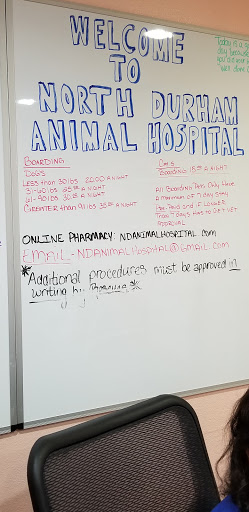 WELCOME
TO
NORTH DURHAM
ANIMAL HOSPITAL
Today is a
day because
BOARDING
DOGS
LESS than 30 lbs 20.00 A NIGHT
31-60 lbs A NIGHT
61-90 lbs 30.15 A NIGHT
GREATER than 91 lbs 35.15 A NIGHT
Cats
Boarding 15.15 A NIGHT
All Boarding Pets Only Have
A maximum OF 7 day STAY
Pre-Paid and IF LONGER
Than 7 days Has to GET VET
APPROVAL
ONLINE PHARMACY: NDANIMALHOSPITAL.com
EMAIL-NDANIMALHOSPITAL@GMAIL.COM
*Additional procedures must be approved in
writing by